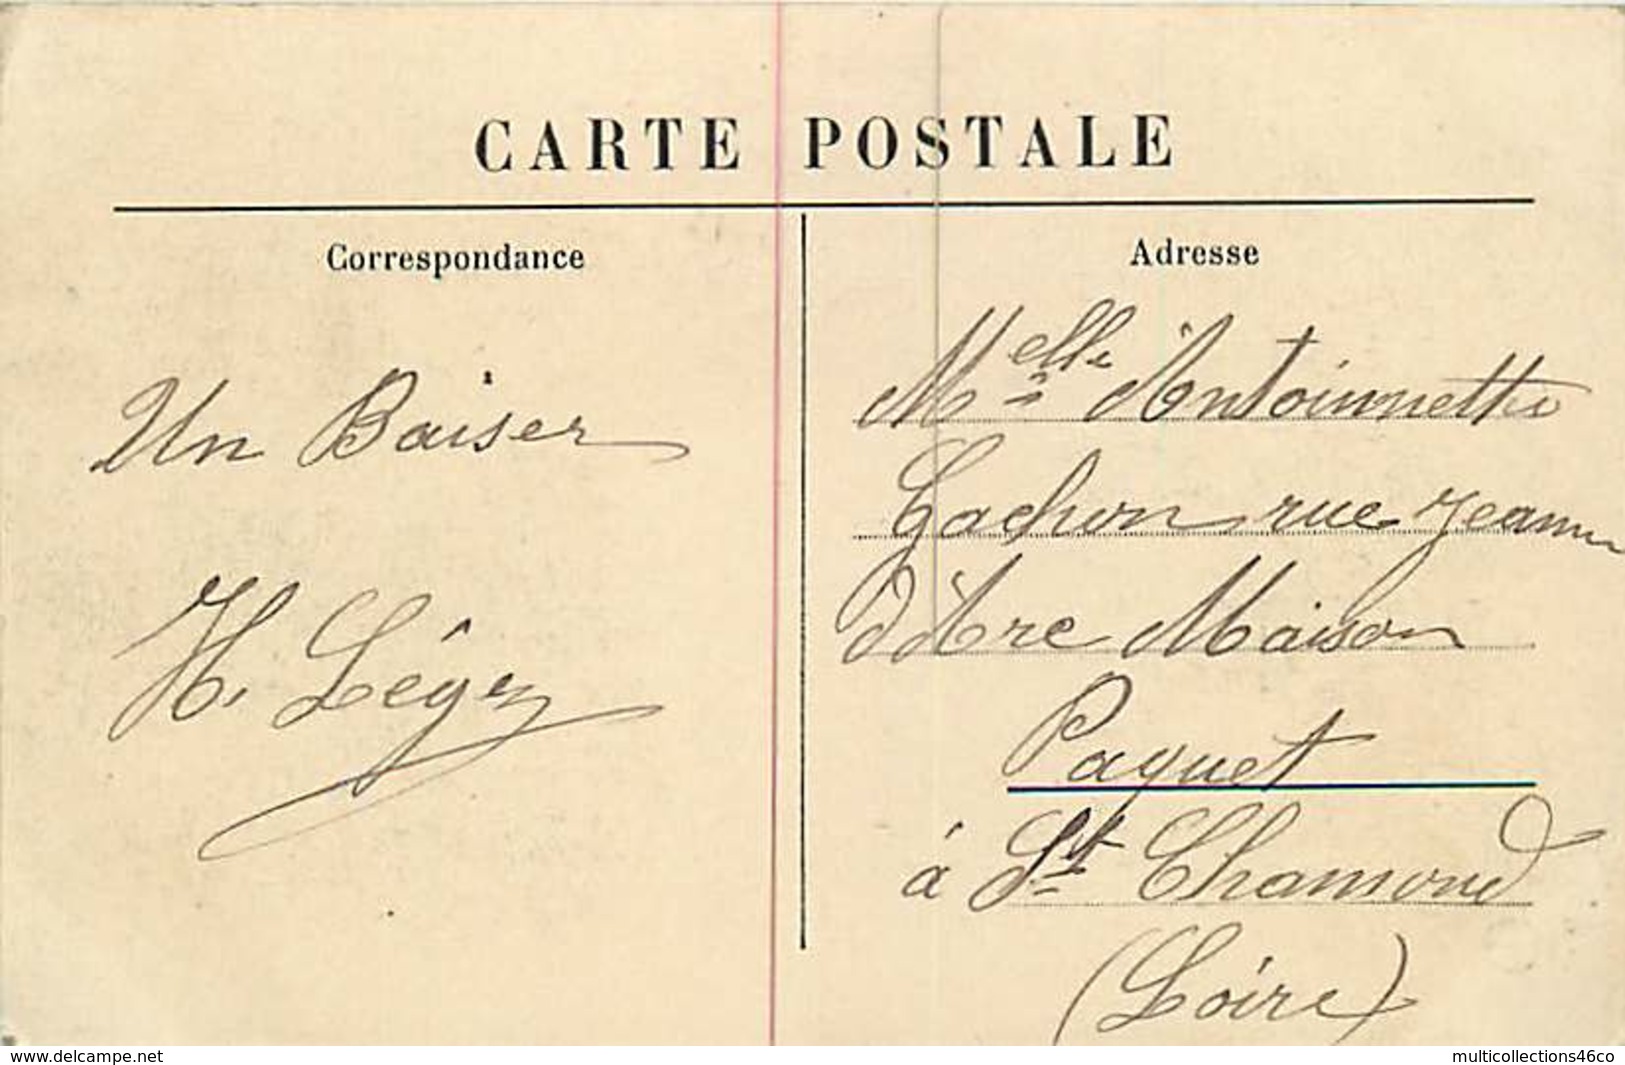 CARTE POSTALE
Correspondance
Un Baiser
H. Léger
Adresse
Melle Antoinnette
Gachon rue jeanne
d'Arc Maison
Paquet
à St Chamond
(Loire)
www.delcampe.net
multicollections46co